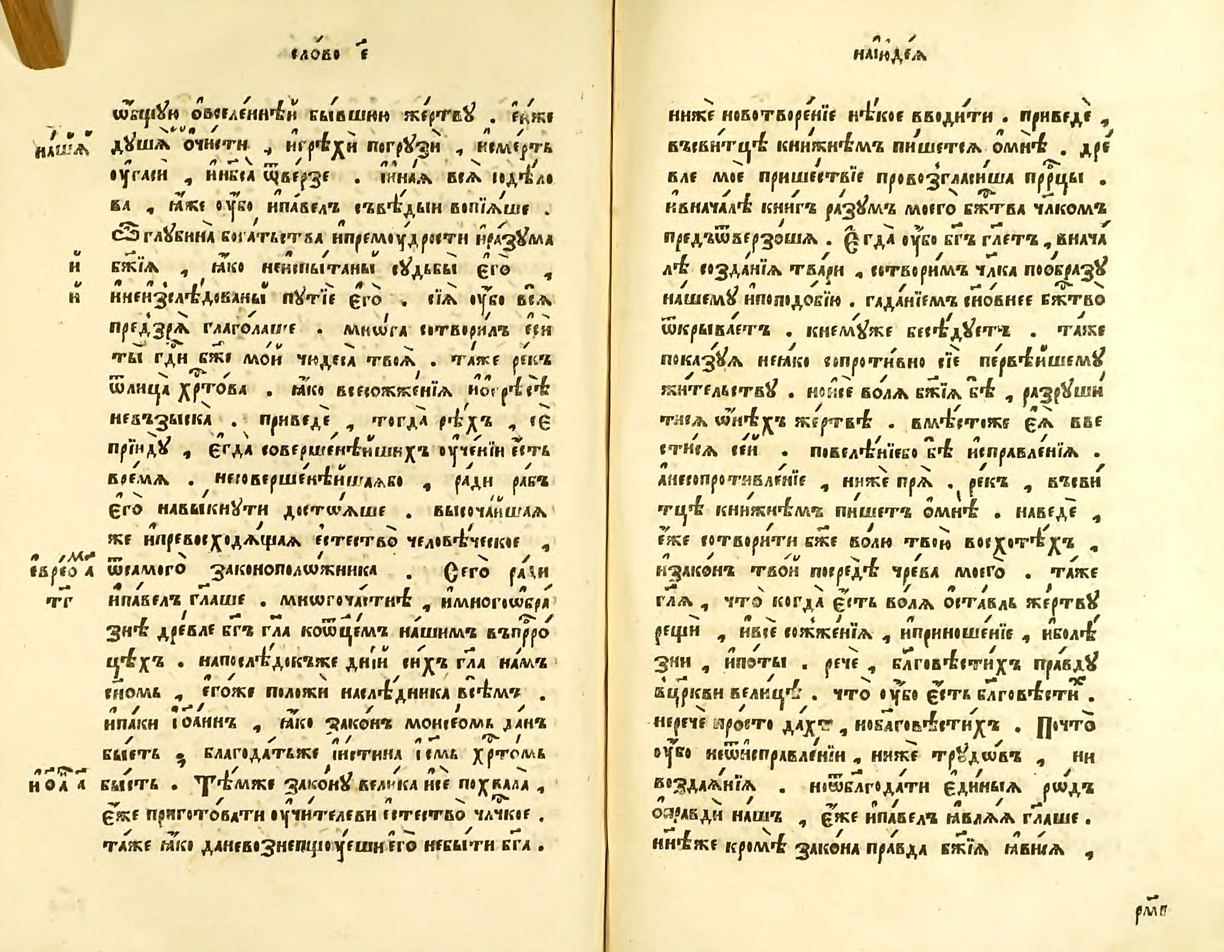 сло́во є҃
ѿбщую̀ ѻ҆вселе́ннѣй бы́вшꙋю же́ртвꙋ . є҆́юже
на́шѧ
дꙋ́шѧ ѻ҆чи́сти , игрѣхѝ погрꙋзѝ , исме́рть
оу҆гасѝ , инб҃са̀ ѿве́рзе . и҆и҆на́ѧ всѧ̀ содѣ́ло
ва , ꙗ҆́же оу҆́бо ипа́велъ съвѣ́дый вопїѧ́ше .
Ѽ глꙋбина̀ бога́тьства ипремꙋ́дрости ира́зꙋма
й
бж҃їѧ , ꙗ҆́ко неиспы́таны сꙋдьбы̀ є҆гѡ̀ ,
й
инеизслѣ́дованы пꙋтїѐ є҆гѡ̀ . сїѧ̀ оу҆́бо всѧ̀
предзрѧ̀ глаго́лаше . мнѡ́га сотвори́лъ є҆сѝ
ты̀ гд҃и бж҃е мо́й чюдеса̀ твоѧ̀ . та́же ре́къ
ѿлица̀ хр҃то́ва . ꙗ҆́ко всесожже́нїѧ ногрѣсѣ̀
невъзыска̀ . приведѐ , тогда̀ рѣ́хъ , сѐ
прїидꙋ̀ , є҆гда̀ соверше́нѣйшихъ оу҆че́нїи є҆́сть
вре́мѧ . несоверше́нѣйшаѧбо , ра́ди ра́бъ
є҆гѡ̀ навы́кнꙋти достоѧ́ше . высоча́йшаѧ
же ипревосходѧ́щаѧ є҆стество̀ человѣ́ческое ,
є҆вре́ѡ м а҃
ѿсамого̀ законополо́жника . Сего̀ ра́ди
тг҃
ипа́велъ гл҃аше . мнѡгоча́стнѣ , имногоѡбра́
знѣ дре́вле бг҃ъ гл҃а коѻ҆тцє́мъ на́шимъ въпр҃ро́
цѣхъ . напослѣ́докъже дні́й си́хъ гл҃а на́мъ
сн҃омь , є҆го́же положѝ наслѣ́дника всѣ́мъ .
ипа́ки і҆ѡа́ннъ , ꙗ҆́ко зако́нъ моисе́омь да́нъ
бы́сть , благода́тьже и҆и́стина і҆с҃мь хр҃то́мь
и҆ѻ҃а а҃
бы́сть . Тѣ́мже зако́нꙋ вели́ка исѐ похвала̀ ,
є҆́же пригото́вати оу҆чи́телеви є҆стество̀ чл҃чкое .
та́же ꙗ҆́ко даневознепщꙋ́еши є҆го̀ небы́ти бг҃а .
наі҆ꙋде́ѧ
нижѐ новотворе́нїе нѣ́кое вводи́ти . приведѐ ,
въсви́тцѣ кни́жнѣмъ пи́шетсѧ ѻ҆мнѣ̀ . дре́
вле моѐ прише́ствїе провозгласи́ша пр҃рцы .
ивнача́лѣ кни́гъ ра́зꙋмъ моего̀ бж҃тва чл҃комъ
предъѿверзо́шѧ . Є҆гда̀ оу҆́бо бг҃ъ гл҃етъ , внача́
лѣ созда́нїѧ тва́ри , сотвори́мъ чл҃ка поѻ҆́бразꙋ
на́шемꙋ ипоподо́бїю . гада́нїемъ сн҃овнее бж҃тво̀
ѿкрыва́етъ . кнемꙋ́же бесѣ́дꙋетъ . та́же
показꙋ́ѧ неꙗ҆́ко сопроти́вно сїѐ первѣ́йшемꙋ
жи́тельствꙋ . ноисѐ во́лѧ бж҃їѧ бѣ̀ , разрꙋши́
тисѧ ѻ҆нѣ́хъ же́ртвѣ . вмѣ́стоже є҆ѧ̀ вве
сти́сѧ се́й . повелѣ́нїебо бѣ̀ исправле́нїѧ .
анесопротивле́нїе , ниже́ прѧ̀ . ре́къ , въсви
тцѣ кни́жнѣмъ пи́шетъ ѻ҆мнѣ̀ . наведѐ ,
є҆́же сотвори́ти бж҃е во́лю твою̀ восхотѣ́хъ ,
изако́нъ тво́й посредѣ̀ чре́ва моегѡ̀ . та́же
гл҃ѧ , что̀ когда̀ є҆́сть во́лѧ ѻ҆ста́вль же́ртвꙋ
рещѝ , ивсѐ сожже́нїѧ , иприноше́нїе , иболѣ́
зни , ипо́ты . речѐ , бл҃говѣсти́хъ пра́вдꙋ
вцр҃кви вели́цѣ . что̀ оу҆́бо є҆́сть бл҃говѣсти́х .
неречѐ про́сто да́хъ , нобл҃аговѣсти́хъ . Почто̀
оу҆́бо неѿисправле́нїи , нижѐ трꙋдо́въ , ни
воздаѧ́нїѧ . ноѿбл҃года́ти є҆ди́ныѧ ро́дъ
ѻ҆правдѝ на́шъ , є҆́же ипа́велъ ꙗ҆влѧ́ѧ гл҃аше .
нн҃ѣже кромѣ̀ зако́на пра́вда бж҃їѧ ꙗ҆ви́сѧ ,